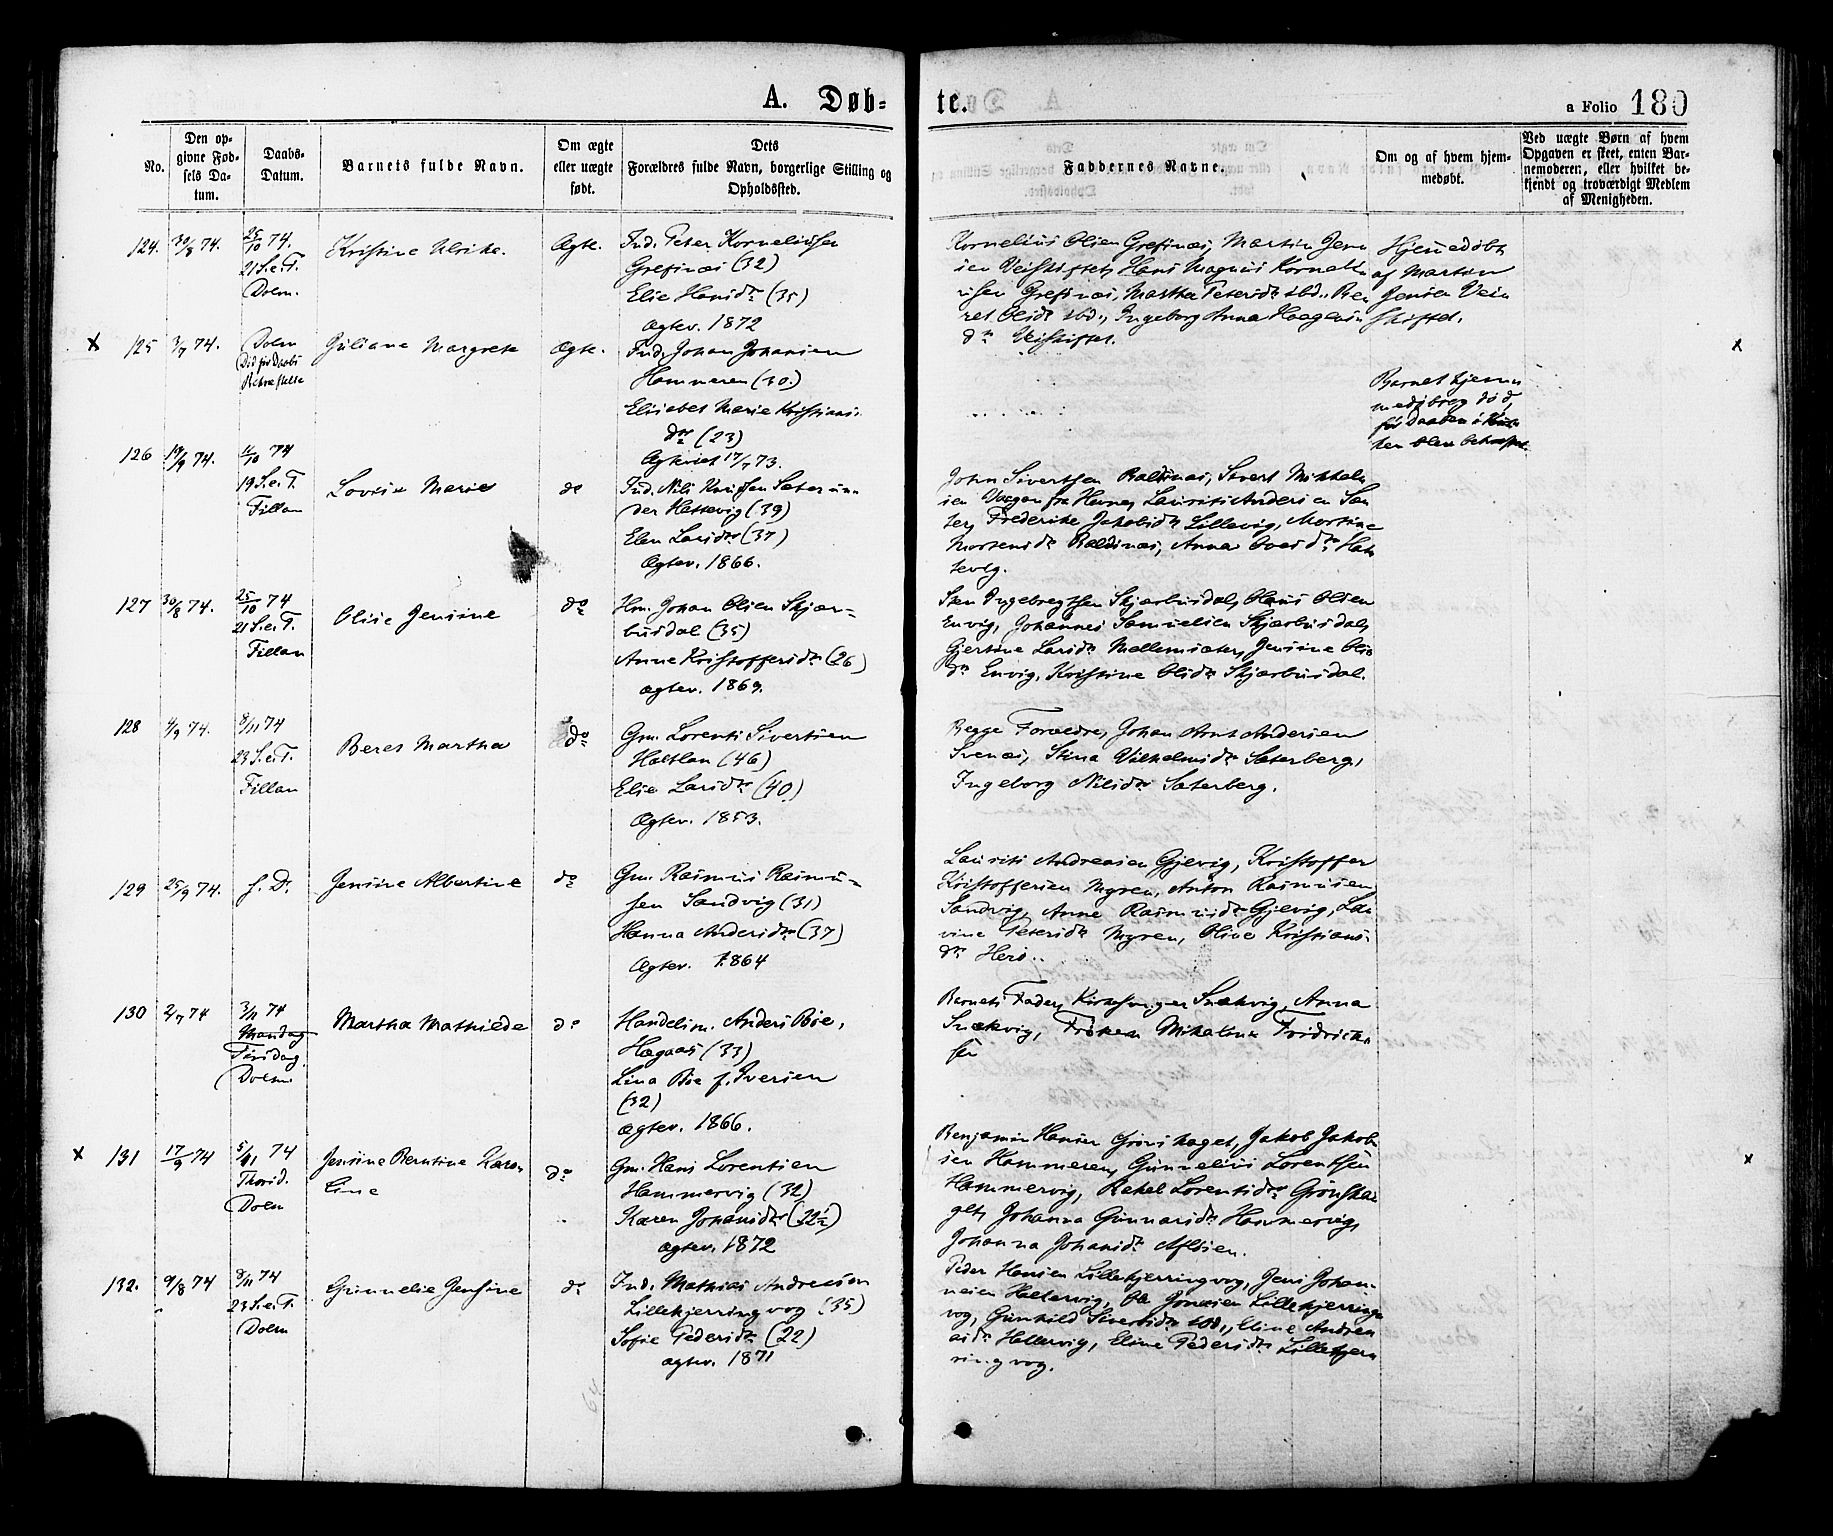 A. Døb-
te.
a Folio 180
No.
Den op-
givne Fød-
sels Da-
tum.
Daabs-
Datum.
Barnets fulde Navn.
Om ægte
eller uægte
født.
Dets
Forældres fulde Navn, borgerlige Stilling og
Opholdssted.
Faddernes Navne.
Om og af hvem hjem-
medøbt.
Ved uægte Børn af hvem
Opgaven er skeet, enten Bar-
nemoderen, eller hvilket be-
kjendt og troværdigt Medlem
af Menigheden.
124. 30/8 74.
25/10 74.
21 S.e.T.
Dolm.
Kristine Ulrike.
Ægte.
Ind. Peter Korneliusen
Grefsnæs (32)
Elie Hansdr (35)
Ægtev. 1872
Kornelius Olsen Grefsnæs, Martin Jen
sen Veiskiftet, Hans Magnus Korneli
usen Grefsnæs, Martha Petersdr ibd., Ber
ret Olsdr ibd., Ingeborg Anna Haagens
dr Veiskiftet.
Hjemmedøbt
af Martin
Jensen Vei
skiftet.
x 125 3/7 74.
Dolm
Død før Daabs
Bekræftelse
Juliane Margrete
Ægte.
Ind. Johan Johansen
Hammeren (30.)
Elisabet Marie Kristians-
dr (23)
Ægteviet 17/7 73.
Barnet hjem
medøbt og død,
før Daaben i Kir
ken blev bekræftet.
x
126 19/9 74.
11/10 74
19 S.e.T.
Fillan
Lovise Marie
do
Ind. Nils Knutsen Sæter un-
der Hattevig (39)
Elen Larsdr (37)
Ægtev. 1866.
John Sivertsen Baldsnæs, Sivert Mikkel
sen Vaagan fra Hevne, Laurits Andersen Sæ
ter, Frederike Jakobsdr Lillevig, Martine
Mortensdr Baldsnæs, Anna Ovesdr Hat
tevig.
127 30/8 74.
25/10 74
21 S.e.T.
Fillan
Olise Jensine
do
Hm. Johan Olsen Skjær-
busdal (35)
Anne Kristoffersdr (26)
Ægtev. 1869.
Sten Ingebregtsen Skjærbusdal, Hans Olsen
Envig, Johannes Samuelsen Skjærbusdal,
Gjertine Larsdr Mellemsæter, Jensine Ols
dr Envig, Kristine Olsdr Skjærbusdal.
128 4/9 74.
8/11 74
23 S.e.T.
Fillan
Beret Martha
do
Gm. Lorents Sivertsen
Haltlan (46)
Elie Larsdr (40)
Ægtev. 1853.
Begge Forældre, Johan Arnt Andersen
Svenæs, Stina Vilhelmsdr Sæterberg,
Ingeborg Nilsdr Sæterberg.
129 25/9 74.
s. D.
Jensine Albertine
do
Gm. Rasmus Rasmu-
sen Sandvig (31)
Hanna Andersdr (37)
Ægtev. 1864
Laurits Andreasen Gjevig, Kristoffer
Kristoffersen Myren, Anton Rasmusen
Sandvig, Anne Rasmusdr Gjevig, Lo
vine Petersdr Myren, Olive Kristians-
dr Herø.
130 2/7 74
3/11 74
Mandag
Tirsdag
Dolm.
Martha Mathilde
do
Handelsm. Anders Bøe,
Hægaas (33)
Lina Bøe f. Iversen
(32)
Ægtev. 1866.
Barnets Fader, Kirkesanger Snekvig, Anna
Snekvig, Frøken Mikaline Fridrich
sen
x 131 17/9 74
5/11 74
Thorsd.
Dolm
Jensine Berntine Karo
line
do
Gm. Hans Lorentsen
Hammervig (32)
Karen Johansdr (22½)
Ægtev. 1872
Benjamin Hansen Grønskaget, Jakob Jakob
sen Hammeren, Gunnelius Lorentsen
Hammervig, Rakel Lorentsdr Grønska
get, Johanna Gunnarsdr Hammervig,
Johanna Johansdr Afløsen.
x
132. 9/8 74
8/11 74
23 S.e.T.
Dolm
Gunnelie Jensine
do
Ind. Mathias Andreasen
Lillekjerringvog (35)
Sofie Pedersdr (22)
Ægtev. 1871
Peder Hansen Lillekjerringvog, Jens Johan-
nesen Hattervig, Ole Jonasen Lillekjerring
vog, Gunhild Sivertsdr ibd., Eline Andrea
sdr Hattervig, Eline Pedersdr Lillekjer
ringvog.
64